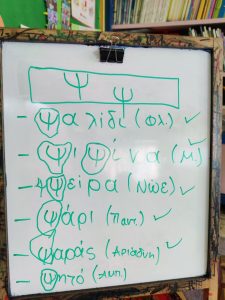 Ψ ψ
- Ψαλίδι (Φλ.) ✓
- Ψιψίνα (Μ) ✓
- Ψείρα (Νώε) ✓
- Ψάρι (Παντ.) ✓
- Ψαράς (Αριάδνη) ✓
- Ψητό (Λυπ.)